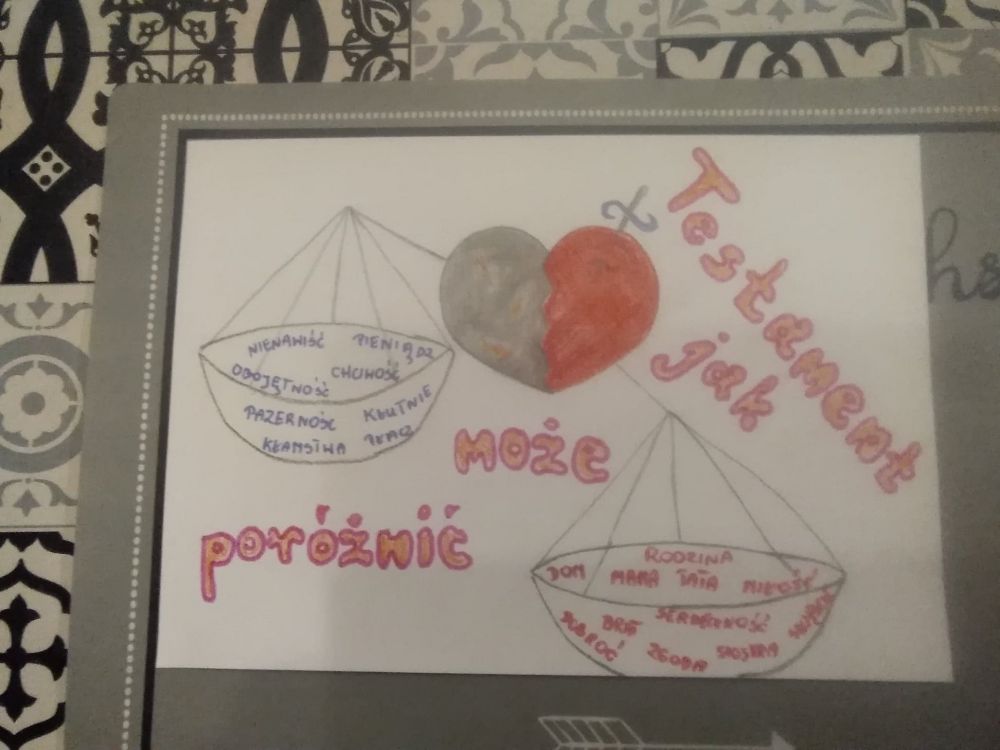 Testament
jak
może
poróżnić
NIENAWIŚĆ PIENIĄDZ
OBOJĘTNOŚĆ CHCIWOŚĆ
PAZERNOŚĆ KŁUTNIE
KŁAMSTWA PŁACZ
RODZINA
DOM MAMA TATA MIŁOŚĆ
SERDECZNOŚĆ
DOBROĆ BRAT ZGODA SIOSTRA
hs